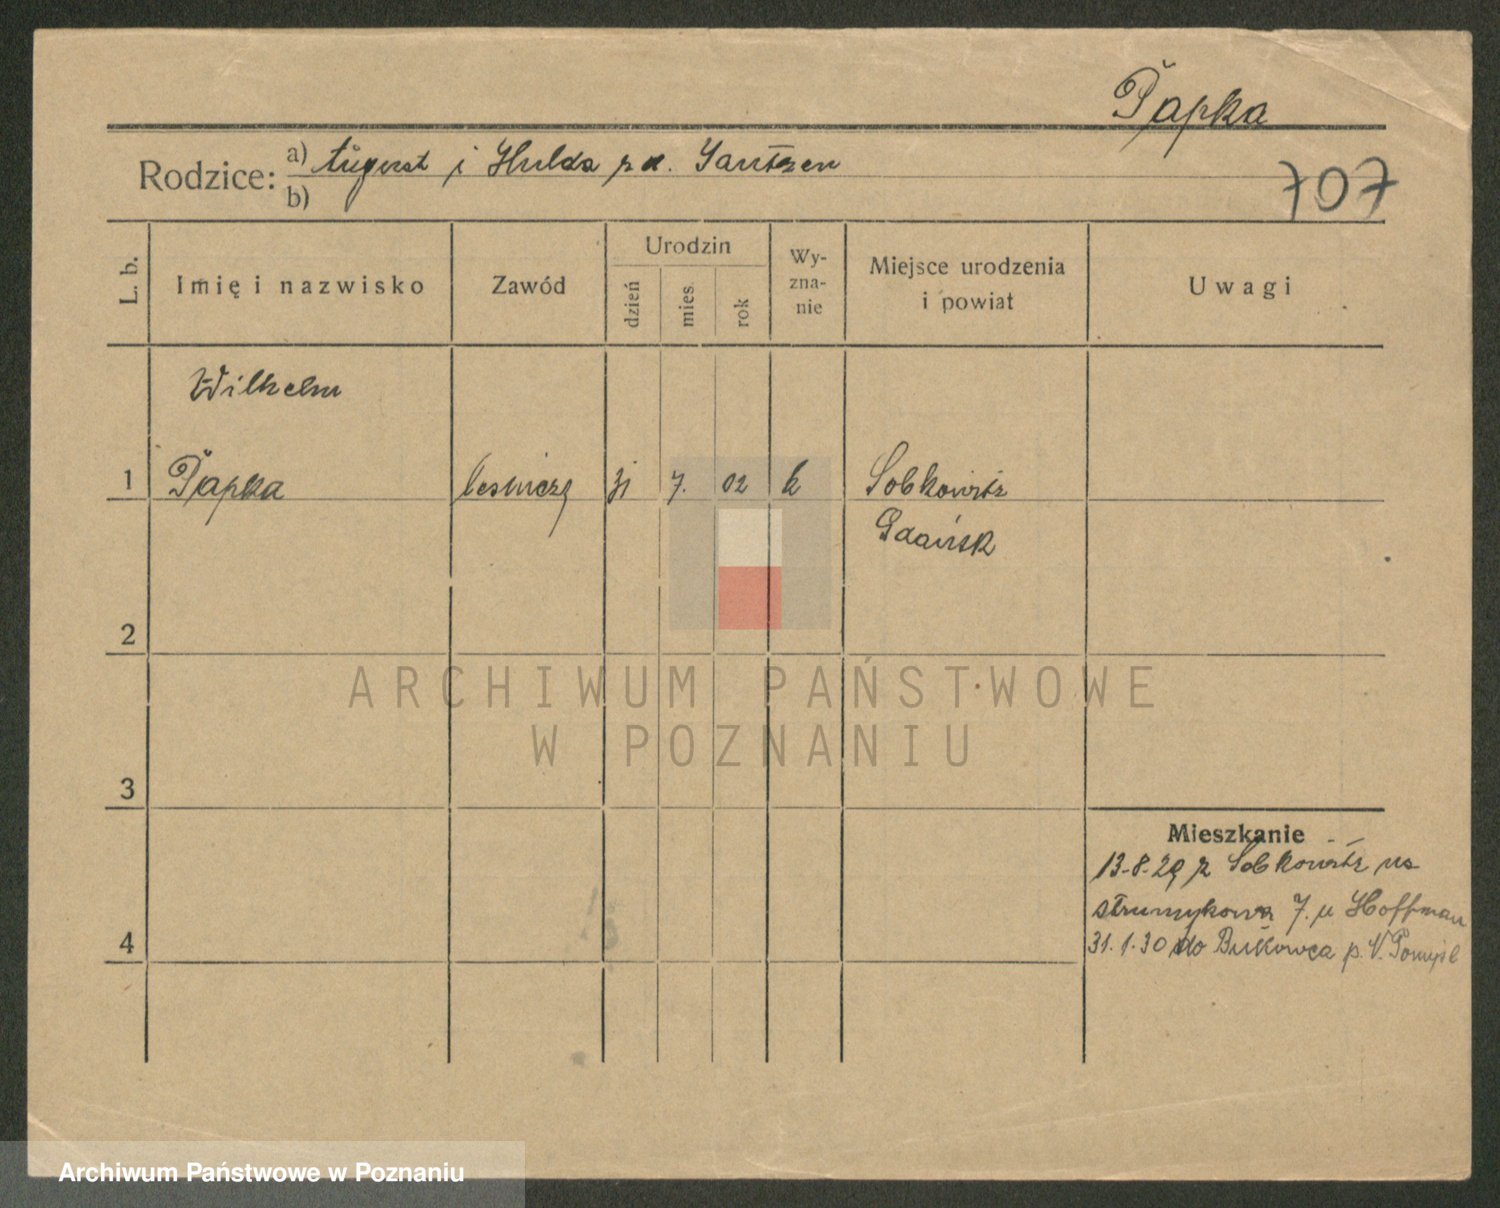 Papka
Rodzice: a) August i Hulda z d. Jantzen
b)
707
L. b.
Imię i nazwisko
Zawód
Urodzin
dzień
mies.
rok
Wy-
zna-
nie
Miejsce urodzenia
i powiat
Uwagi
Wilhelm
1 Papka leśniczy 31 7. 02 k Sobkowitz
Gdańsk
2
3
4
Mieszkanie
13-8-29 z Sobkowitz na
strumykowa 7. u Hoffman
31.1.30 do Bukowca p. N. Tomyśl
ARCHIWUM PAŃSTWOWE
W POZNANIU
Archiwum Państwowe w Poznaniu